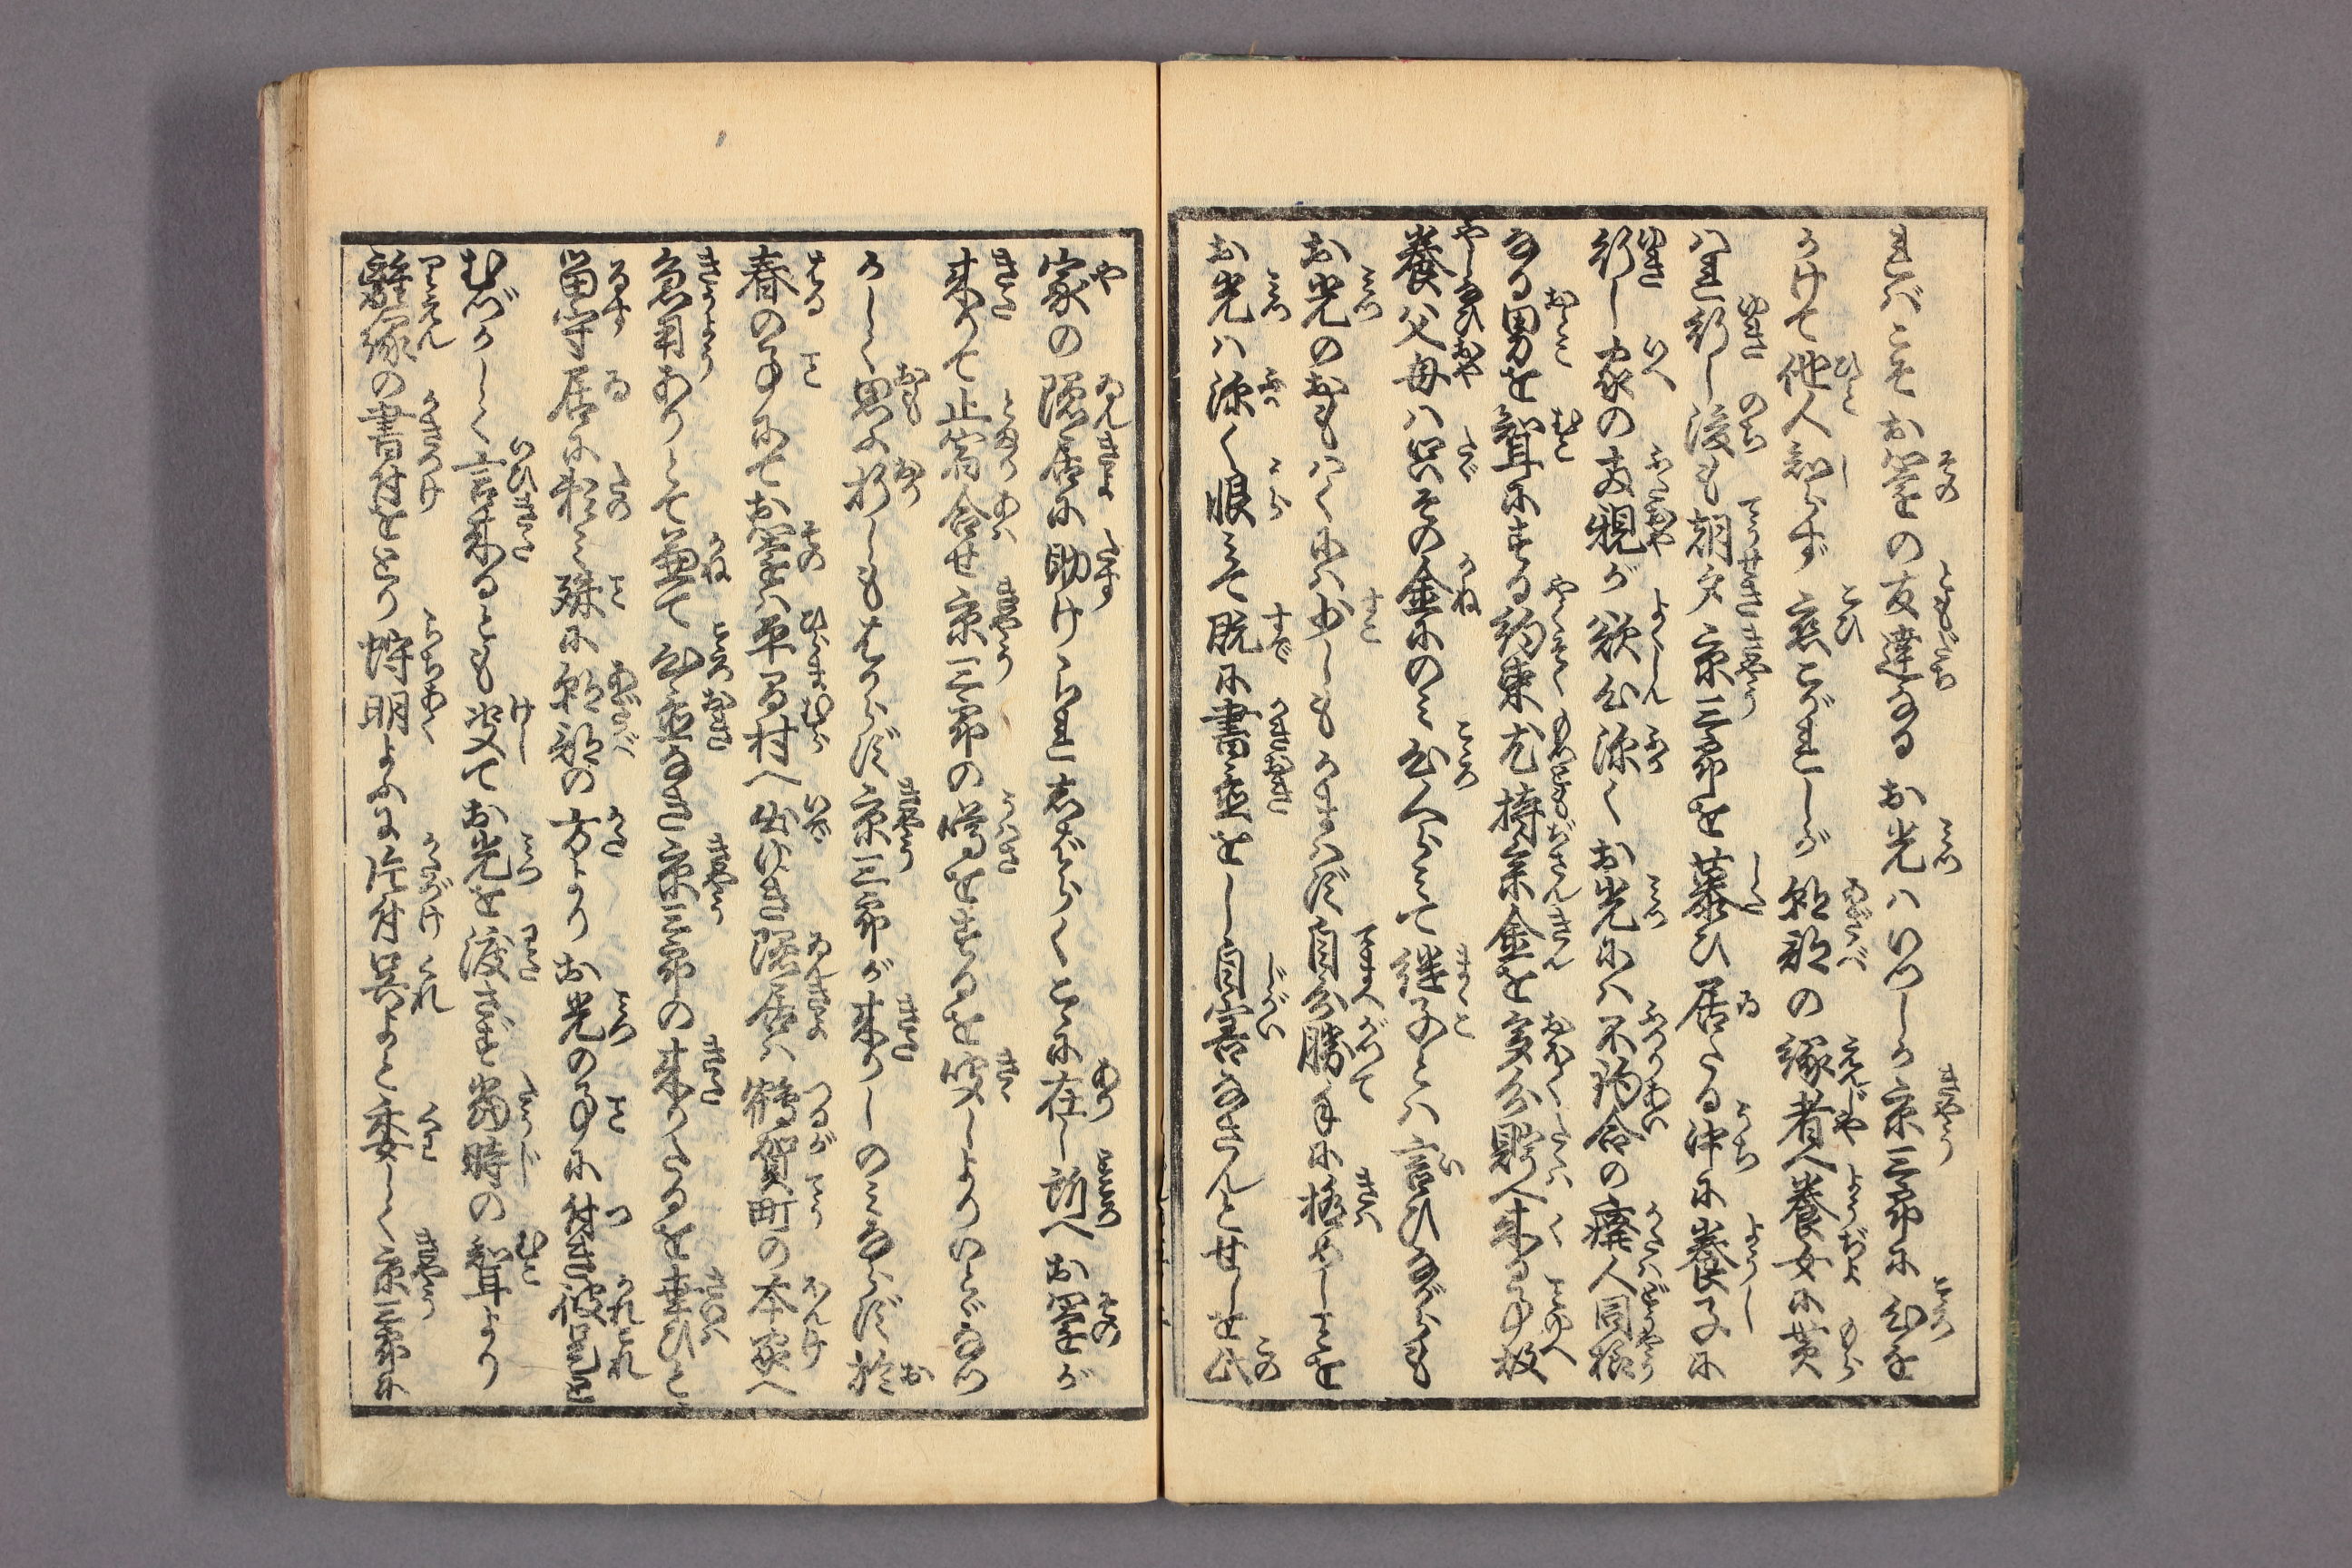 れバこそお筆の友達なるお光ハいつしか京三郎に心を
かけて他人知らず恋こがれしが邦部の縁者へ養女に貰
ハれ行し後も朝夕京三郎を慕ひ居たる中に養子に
行し家の両親が欲心深くお光にハ不釣合の癈人同様
なる男を聟にする約束尤持参金を多分贈へ来る事故
養父母ハ只その金にのミ心くらミて継子とハ言ひながらも
お光のおもハくにハ少しもかまハず自分勝手に極めしことを
お光ハ深く恨ミて既に書置をし自害なさんとせしを此
家の隠居に助けられしばらくこゝに在し訢へお筆が
来りて止宿合せ京三郎の噂をするを聞しよりいとゞなつ
かしく思ふ折しもはからず京三郎が来りしのミならず於
春の事にてお筆ハ平間村へ出ゆき隠居ハ鶴賀町の本家へ
急用ありとて兼て心置なき京三郎の来りたるを幸ひと
留守居に頼ミ殊に邦部の方よりお光の事に付き彼是と
むづかしく言来るとも決てお光を渡さず当時の聟より
離縁の書付をとり埒明よふに片付呉よと委しく京三郎に